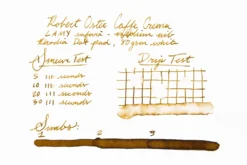 Robert Oster Caffe Crema
LAMY safari - medium nib
Rhodia Dot pad, 80gram white
Smear Test
Drip Test
5 seconds
10 seconds
20 seconds
30 seconds
Swabs:
1 2 3